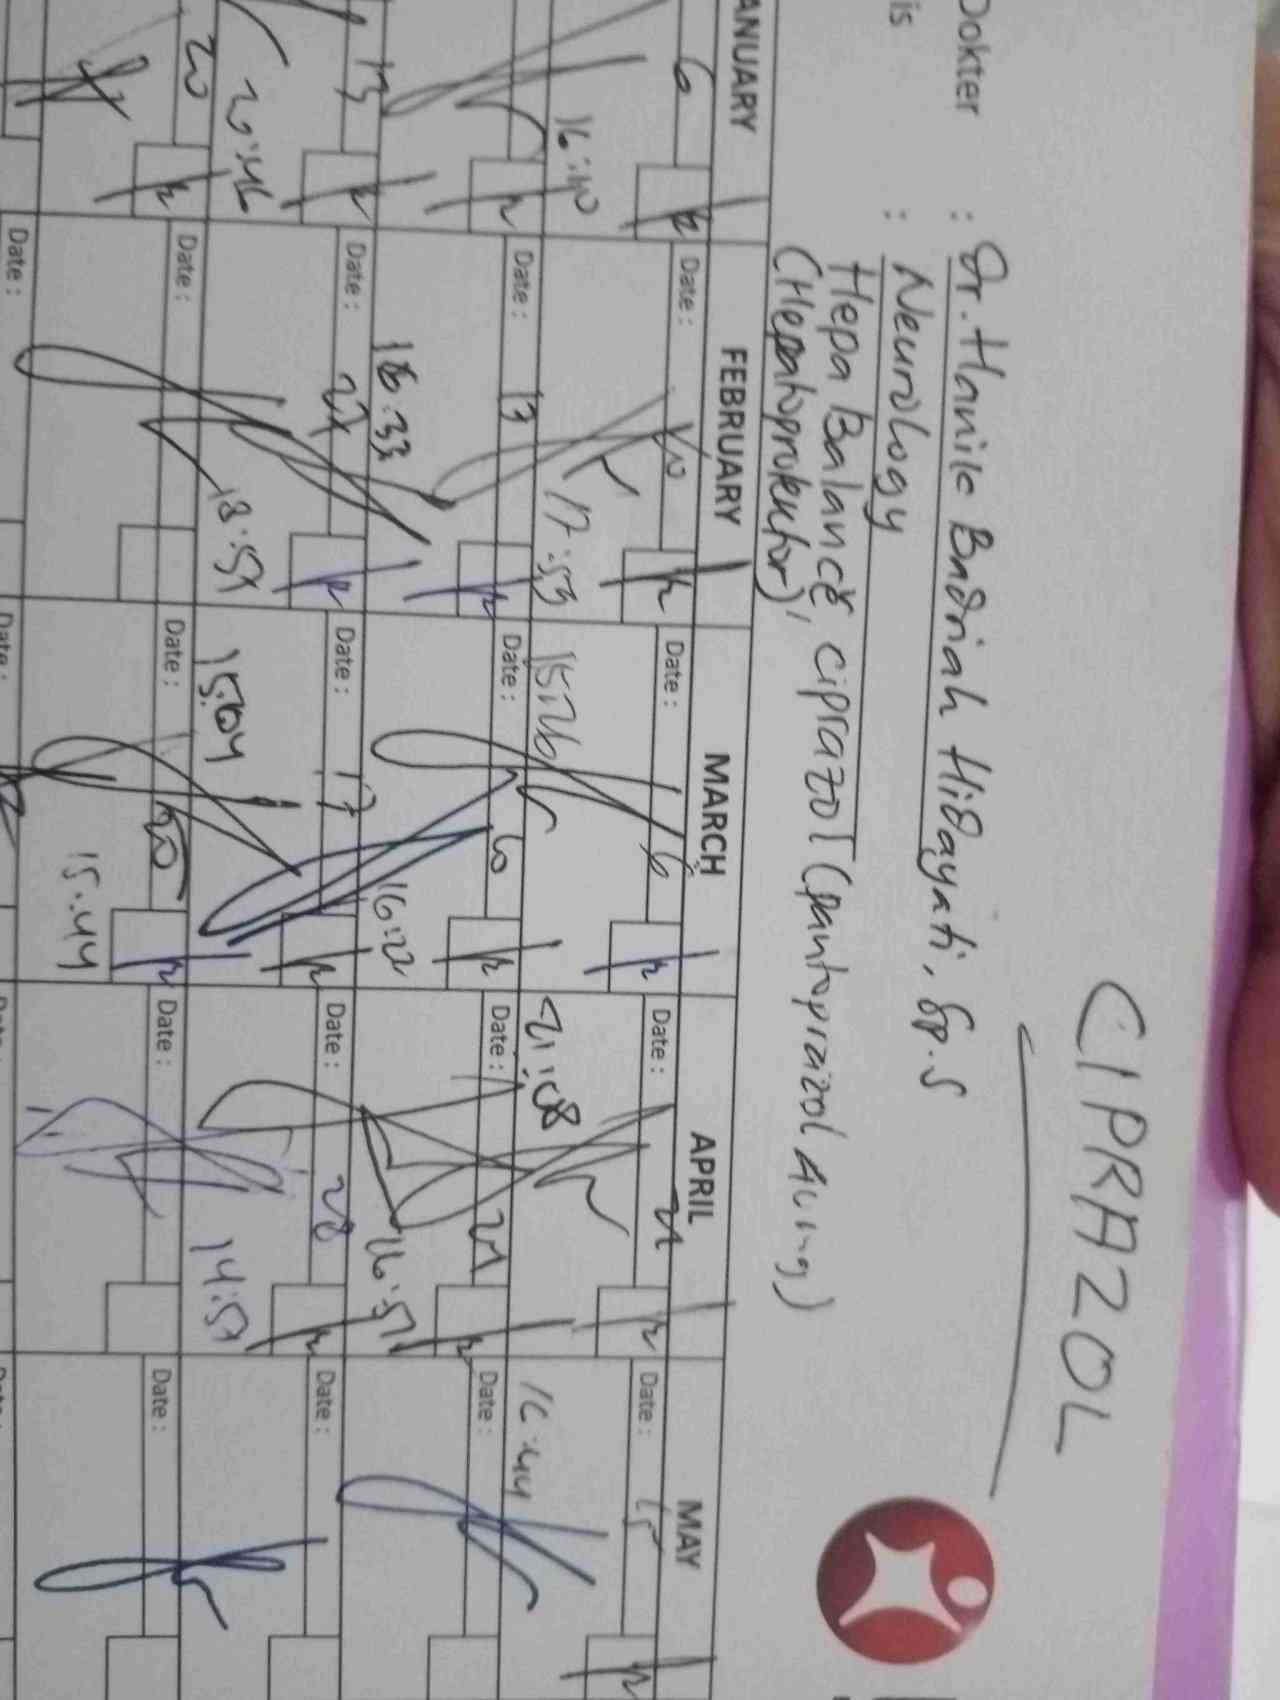 CIPRAZOL
Dokter : Dr. Hanile Badriah Hidayati, Sp.S
is : Neurology
Hepa Balance, ciprazol (pantoprazol 40 mg)
(Hepatoprotektor),
ANUARY FEBRUARY MARCH APRIL MAY
6 Date: Date: 6 Date: 21 Date: 15
16:40 17:53 15:26 21:08 16:44
Date: 13 Date: Date: 21 Date:
13 18:33 16:22 16:51
Date: 27 Date: 17 Date: 28 Date:
20:46 18:57 15:04 14:57
20 Date: Date: 20 Date: Date:
15:44
Date: Date: